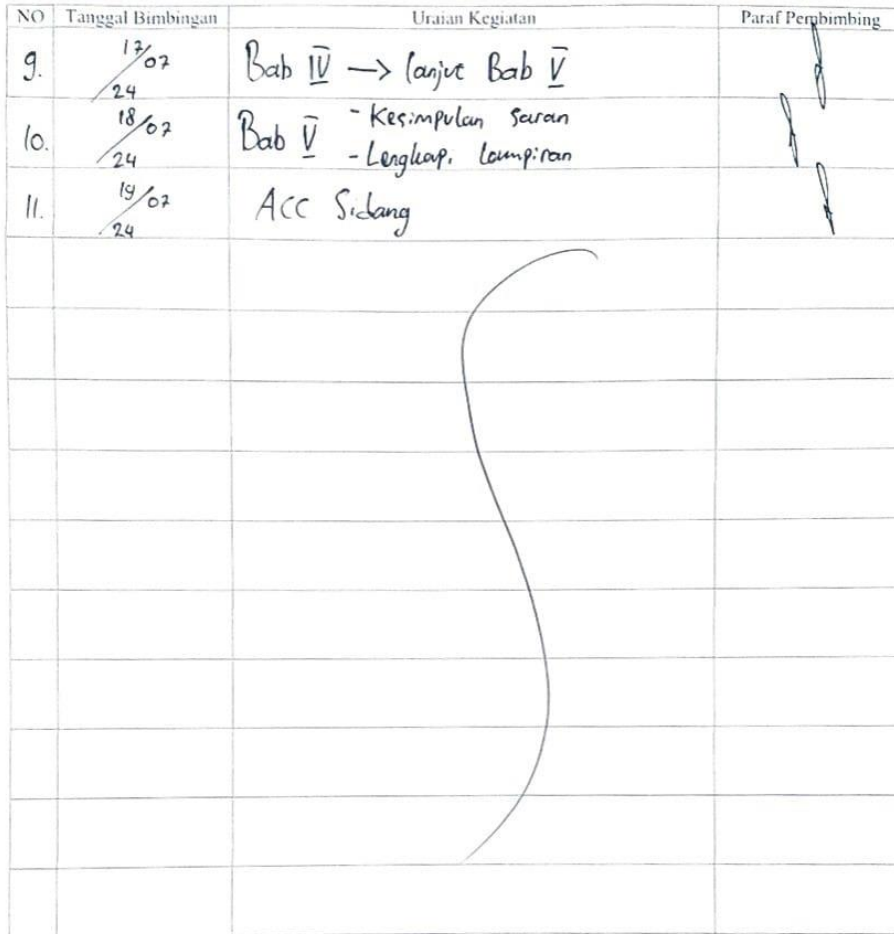 NO Tanggal Bimbingan Uraian Kegiatan Paraf Pembimbing
9. 17/07/24 Bab IV → lanjut Bab V
10. 18/07/24 Bab V - Kesimpulan saran
- Lengkapi lampiran
11. 19/07/24 ACC Sidang